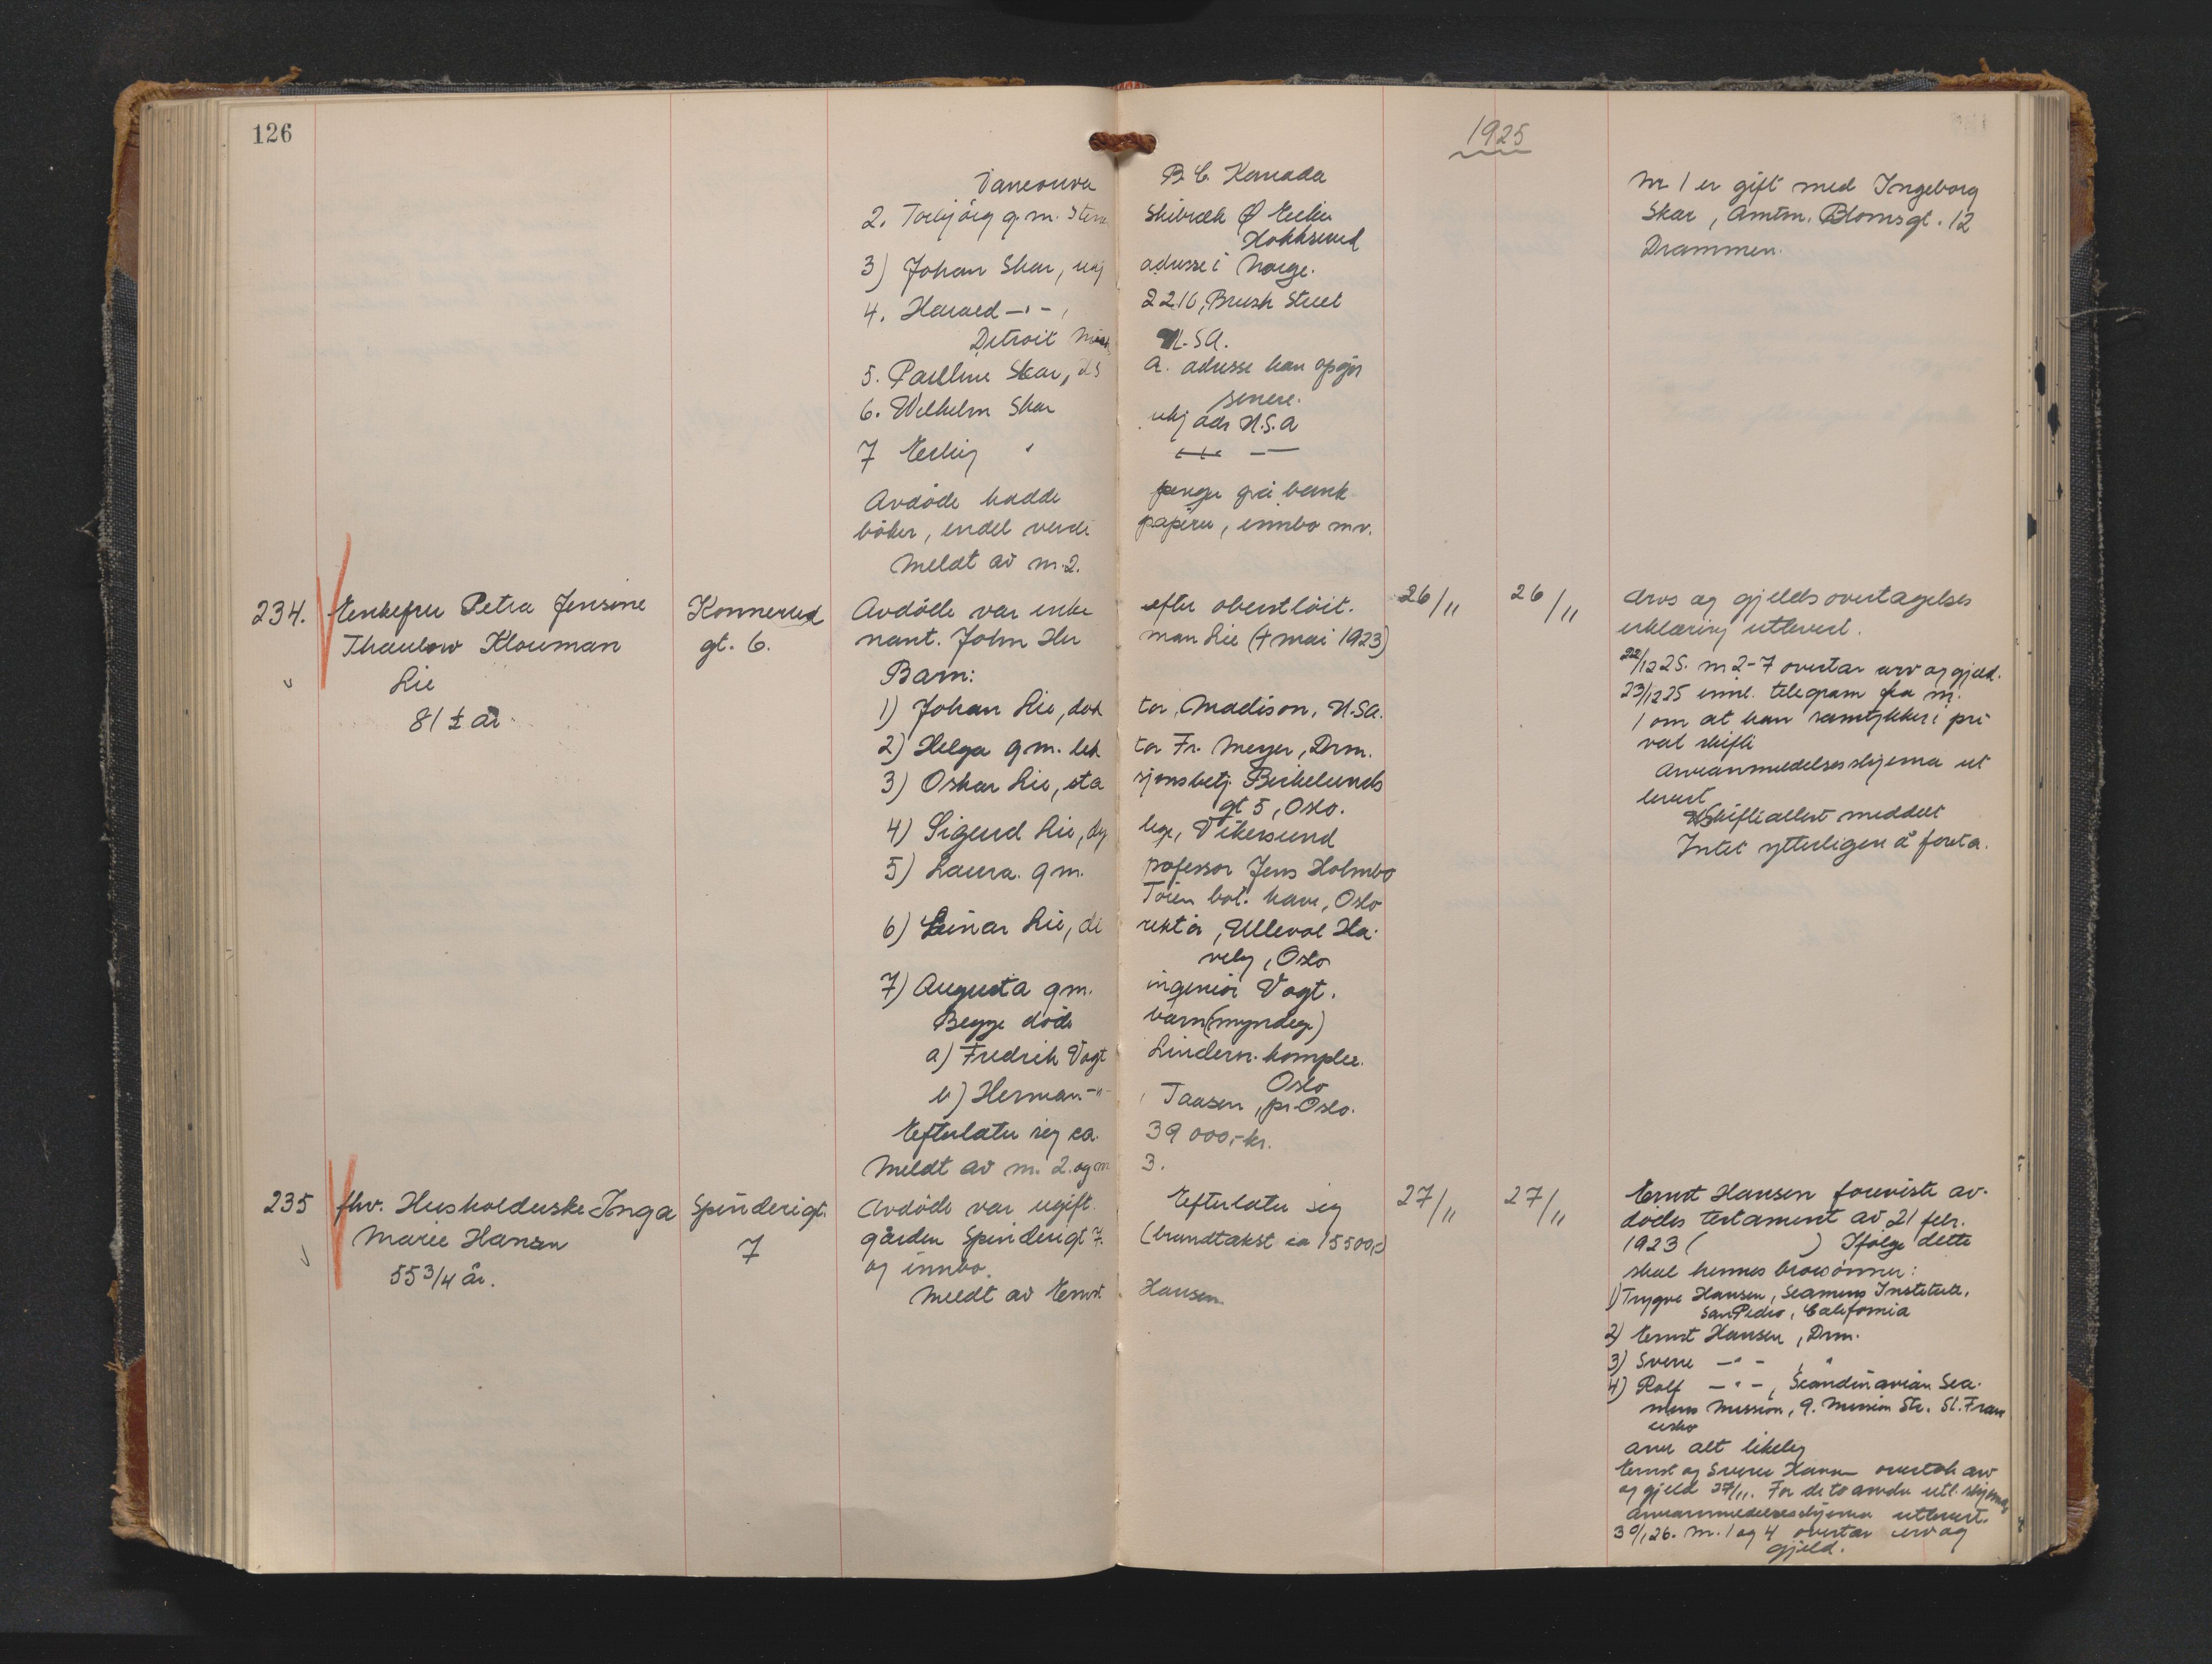 126
1925
Vancouver B. C. Kanada
2. Torbjörg g. m. Sten Skibrek Ø Eiker
Hokksund
3) Johan Skar, ukj adresse i Norge.
4. Harald -"-, 2216, Brush Street
Detroit Mich U.S.A.
5. Pauline Skar, U S A. adresse kan opgis
senere.
6. Wilhelm Skar ukj adr U.S.A
7 Erling "
Avdöde hadde penge på bank
böker, endel verdi papirer, innbo m.v.
Meldt av nr. 2.
Nr 1 er gift med Ingeborg
Skar, Amtm. Blomsgt. 12
Drammen.
234.
Enkefru Petra Jensine
Thaulow Klouman
Lie
81 ½ år.
Konnerud
gt. 6.
Avdöde var enke efter oberstlöit.
nant. John Her man Lie (4 mai 1923)
Barn:
1) Johan Lie, dok tor, Madison, U.S.A.
2) Helga g m. lek tor Fr. Meyer, Drm.
3) Oskar Lie, sta sjonsbetj. Birkelunds
gt 5, Oslo.
4) Sigurd Lie, dy lege, Vikersund
5) Laura. g m. professor Jens Holmbo
Töien bot. have, Oslo
6) Einar Lie, di rektör, Ullevål Ha.
veby, Oslo
7) Augusta g m. ingeniör Vogt.
Begge döde barn (myndige)
a) Fredrik Vogt Lindern. komplex.
Oslo
b) Herman -"- , Taasen, pr. Oslo.
Efterlater sig ca. 39 000,- kr.
Meldt av nr. 2. og nr 3.
26/11
26/11
Arvs og gjeldsovertagelses
erklæring utlevert.
22/12 25. nr 2-7 overtar arv og gjeld.
23/12 25 innl. telegram fra nr.
1 om at han samtykker i pri
vat skifte
Arveanmeldelsesskjema ut
levert
Skifteattest meddelt
Intet ytterligere å foreta.
235
fhv. Husholderske Inga
Marie Hansen
55 3/4 år.
Spinderigt.
7
Avdöde var ugift. Efterlater sig
gården Spinderigt 7. (brandtakst ca 15500,-)
og innbo.
Meldt av Ernst Hansen
27/11
27/11
Ernst Hansen foreviste av.
dödes testament av 21 febr.
1923 ( ) Ifölge dette
skal hennes brorsönner:
1) Trygve Hansen, Seamens Institute,
San Pedro, California
2) Ernst Hansen, Drm.
3) Sverre -"- , "
4) Rolf -"-, Scandinavian Sea.
mens Mission, 9. Mission Str. St. Fran
cisko
arve alt likelig
Ernst og Sverre Hansen overtok arv
og gjeld 27/11. For de to andre utl. skjema
Arveanmeldelsesskjema utlevert.
30/1 26. nr. 1 og 4 overtar arv og
gjeld.